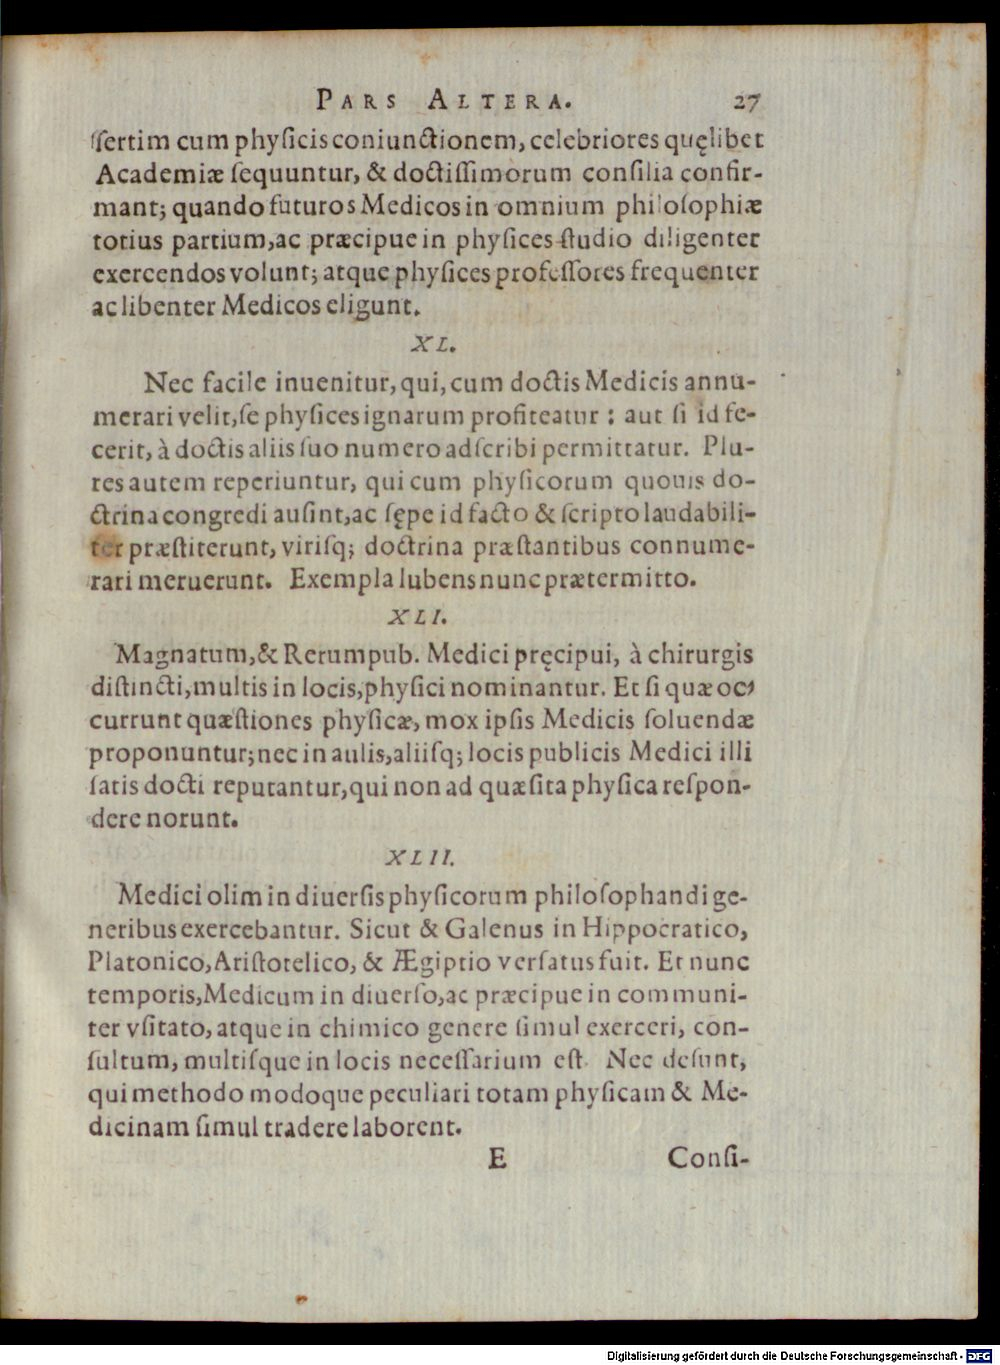 PARS ALTERA. 27
ſſertim cum phyſicis coniunctionem, celebriores quęlibet
Academiæ ſequuntur, & doctiſſimorum conſilia confir-
mant; quando futuros Medicos in omnium philoſophiæ
totius partium, ac præcipue in phyſices ſtudio diligenter
exercendos volunt; atque phyſices profeſſores frequenter
ac libenter Medicos eligunt.
XL.
Nec facile inuenitur, qui, cum doctis Medicis annu-
merari velit, ſe phyſices ignarum profiteatur : aut ſi id fe-
cerit, à doctis aliis ſuo numero adſcribi permittatur. Plu-
res autem reperiuntur, qui cum phyſicorum quouis do-
ctrina congredi auſint, ac ſępe id facto & ſcripto laudabili-
ter præſtiterunt, viriſq; doctrina præſtantibus connume-
rari meruerunt. Exempla lubens nunc prætermitto.
XLI.
Magnatum, & Rerumpub. Medici pręcipui, à chirurgis
diſtincti, multis in locis, phyſici nominantur. Et ſi quæ oc-
currunt quæſtiones phyſicæ, mox ipſis Medicis ſoluendæ
proponuntur; nec in aulis, aliiſq; locis publicis Medici illi
ſatis docti reputantur, qui non ad quæſita phyſica reſpon-
dere norunt.
XLII.
Medici olim in diuerſis phyſicorum philoſophandi ge-
neribus exercebantur. Sicut & Galenus in Hippocratico,
Platonico, Ariſtotelico, & Ægiptio verſatus fuit. Et nunc
temporis, Medicum in diuerſo, ac præcipue in communi-
ter vſitato, atque in chimico genere ſimul exerceri, con-
ſultum, multiſque in locis neceſſarium eſt. Nec deſunt,
qui methodo modoque peculiari totam phyſicam & Me-
dicinam ſimul tradere laborent.
E Conſi-
Digitalisierung gefördert durch die Deutsche Forschungsgemeinschaft - DFG